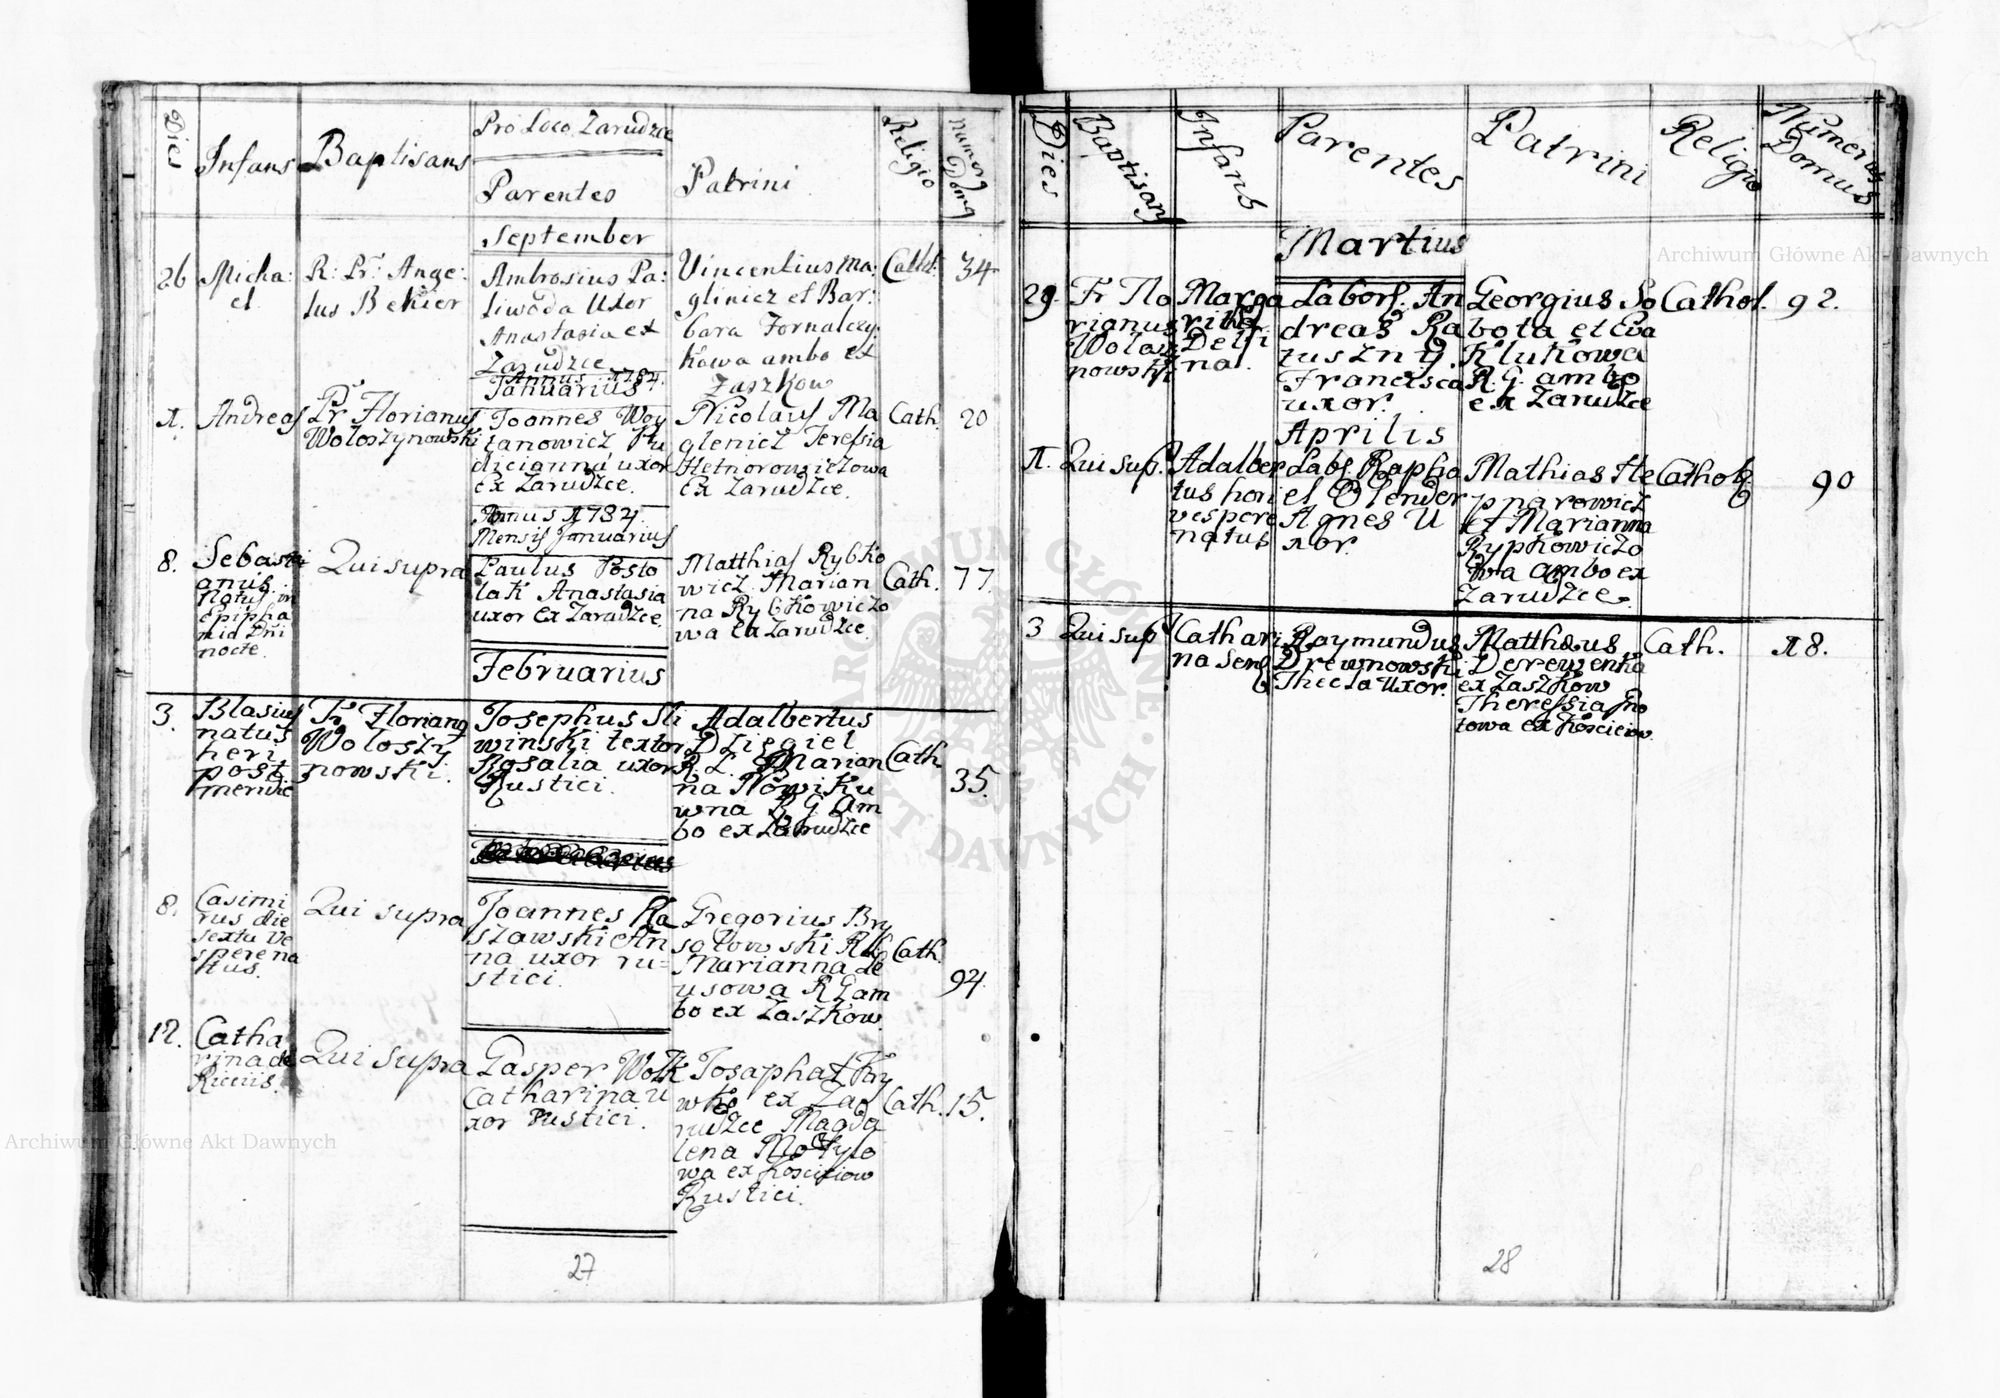 Dies
Infans
Baptisans
Pro Loco Zarudzce
Parentes
Patrini
Religio
Numerq Domq
September
26
Micha:
el
R: Pr: Ange:
lus Bekier
Ambrosius Pa:
liwoda Uxor
Anastasia ex
Zarudzce
Vincentius Ma:
gliniez et Bar:
bara Fornalczy:
kowa ambo ex
Zaszkow
Cathol:
34
Annus 1784.
Januarius
1.
Andreas
Pr Florianus
Wołoszynowski
Joannes Woy
tanowicz
uxor
Ex Zarudzce.
Nicolaus Ma
glenicz Teressia
Hetnorowiczowa
Ex Zarudzce.
Cath.
20
Annus 1784.
Mensis Januarius
8.
Sebasti
anus
natus in
epipha
nia Dni
nocte.
Qui supra
Paulus Posto
lak Anastasia
uxor Ex Zarudzce.
Matthias Rybko
wicz Marian
na Rybkowiczo
wa Ex Zarudzce
Cath.
77.
Februarius
3.
Blasius
natus
heri
post
meridie
Fr Florianq
Wołoszy
nowski.
Josephus Sli
winski textor
Rosalia uxor
Rustici.
Adalbertus
Dziegiel
R. L. Marian
na Nowiku
wna R G Am
bo ex Zarudzce
Cath
35.
8.
Casimi
rus die
sexta ve
spere na
tus.
Qui supra
Joannes Ka
szawski An
na uxor ru=
stici.
Gregorius Bry
sołowski
Marianna de
usowa R G am
bo ex Zaszkow.
Cath.
94.
12.
Catha
rina de
Ricciis.
Qui supra
Gasper Wołk
Catharina u
xor Rustici.
Josaphat Kry
wko ex Za
rudzce Magda
lena Motylo
wa ex Kosciciow
Rustici.
Cath.
15.
27
Dies
Baptisans
Infans
Parentes
Patrini
Religio
Numerus
Domus
Martius
29.
Fr Flo
rianus
Wołoszy
nowski
Marga
rita
Delfi
na.
Labors. An
dreas Ra
tuszny.
Francisca
uxor.
Georgius So
bota et Eva
Klukowa
R. G. ambo
ex Zarudzce
Cathol.
92.
Aprilis
1.
Qui sup.
Adalber
tus heri
vespere
natus
Labs. Rapha
el Olender
Agnes U
xor.
Mathias He
pnarowicz
et Marianna
Rypkowiczo
wa ambo ex
Zarudzce.
Cathol.
90
3
Qui sup.
Cathari
na Sens
Raymundus
Drewnowski
Thecla Uxor.
Matthaus
Derewenka
ex Zaszkow
Theressia Gno
towa ex Kosciciow.
Cath.
18.
28
Archiwum Główne Akt Dawnych
Archiwum Główne Akt Dawnych
ARCHIWUM GŁÓWNE AKT DAWNYCH